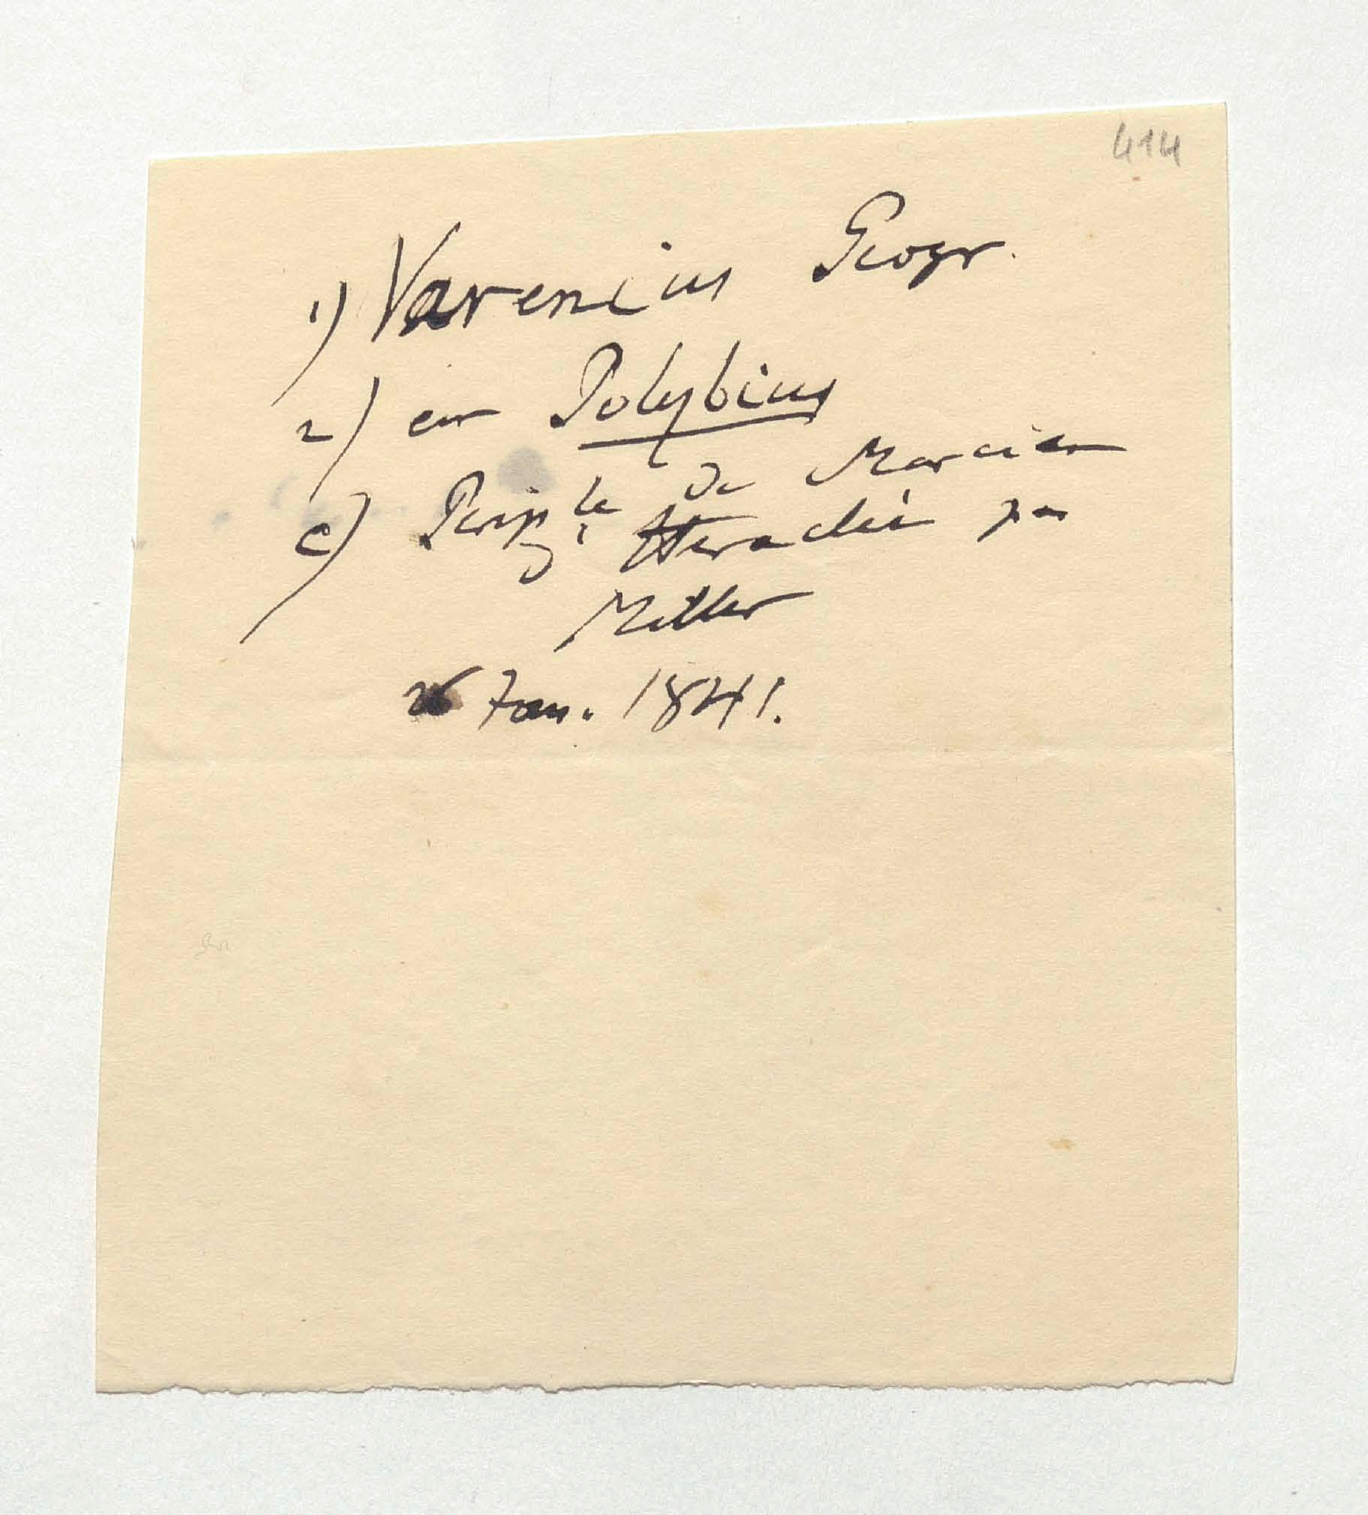 414
1) Varenius Geogr.
2) ein Polybius
c) Periple de Marcien
Heraclée par
Miller
26 Jan. 1841.